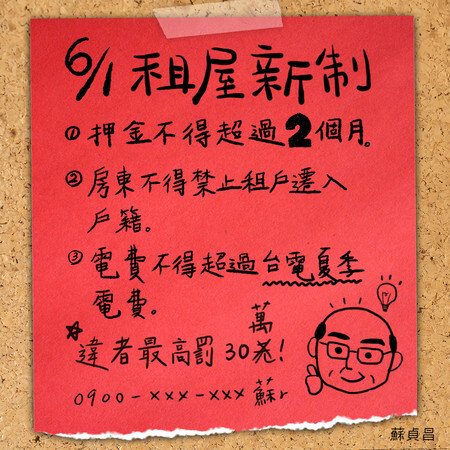 6/1租屋新制
① 押金不得超過2個月。
② 房東不得禁止租戶遷入
戶籍。
③ 電費不得超過台電夏季
電費。
☆違者最高罰30萬!
0900-xxx-xxx 蘇
蘇貞昌